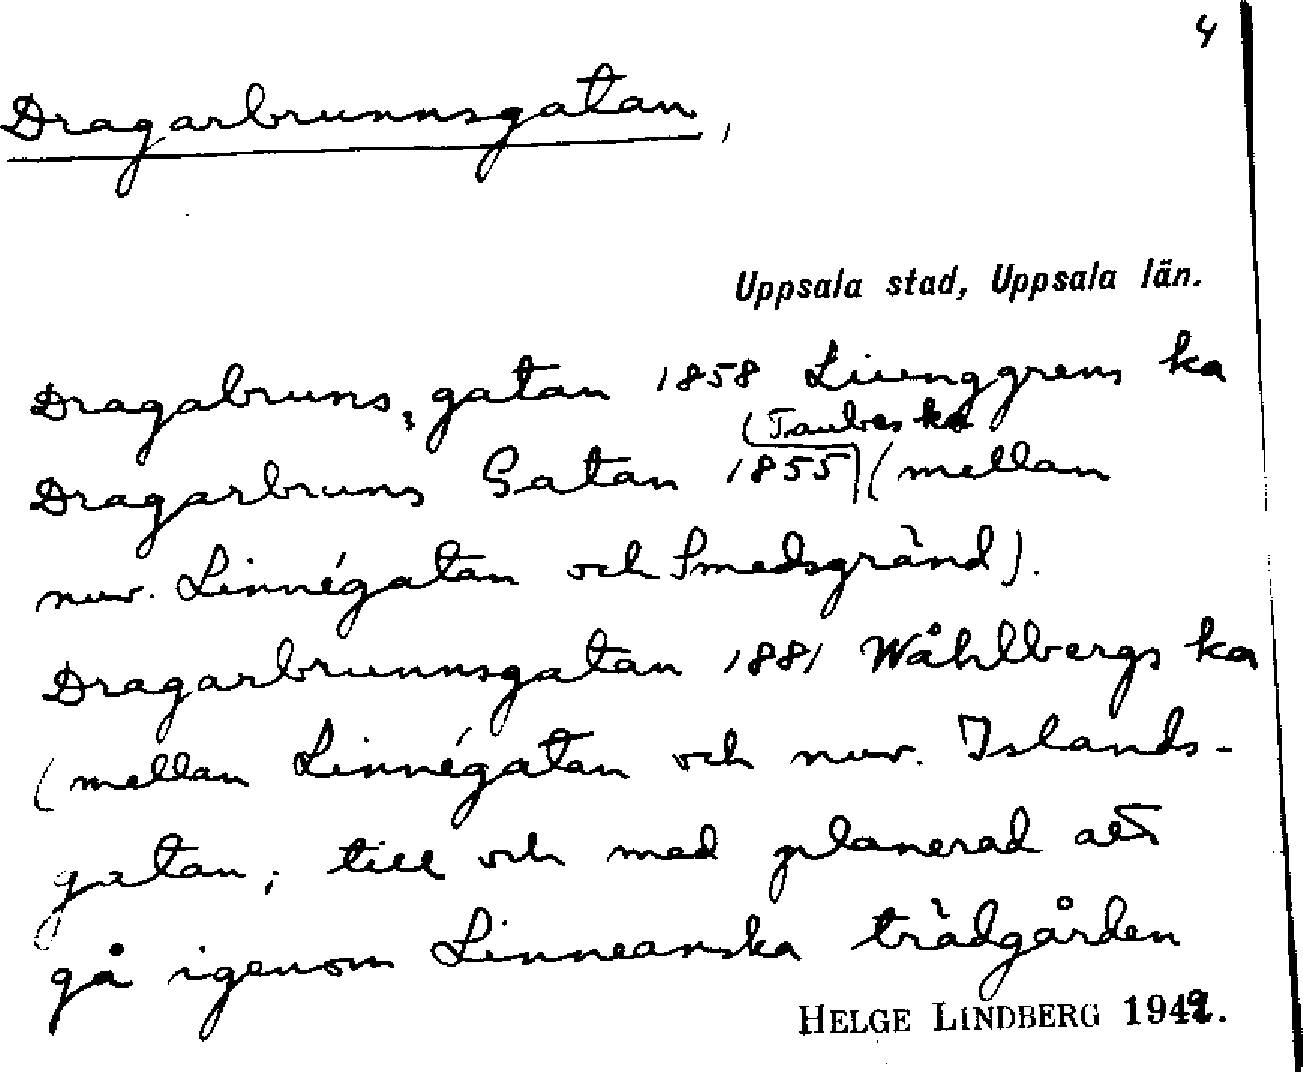 4
Dragarbrunnsgatan,
Uppsala stad, Uppsala län.
Dragabruns, gatan 1858 Liunggrens ka
(Taubes ka
Dragarbruns Gatan 1855) (mellan
nuv. Linnégatan och Smedsgränd).
Dragarbrunnsgatan 1881 Wåhlbergs ka
(mellan Linnégatan och nuv. Islands-
gatan; till och med planerad att
gå igenom Linneanska trädgården
HELGE LINDBERG 1942.